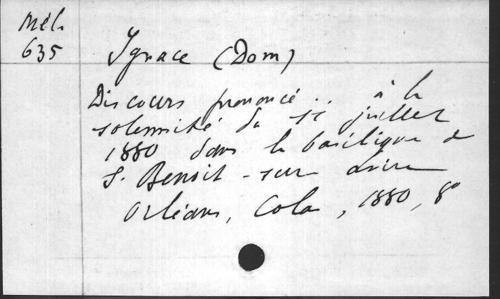 Mél.
635
Ignace (Dom)
Discours prononcé... à la
solennité du 11 juillet
1880 dans la basilique de
S. Benoît-sur-Loire
Orléans, Colas, 1880, 8°